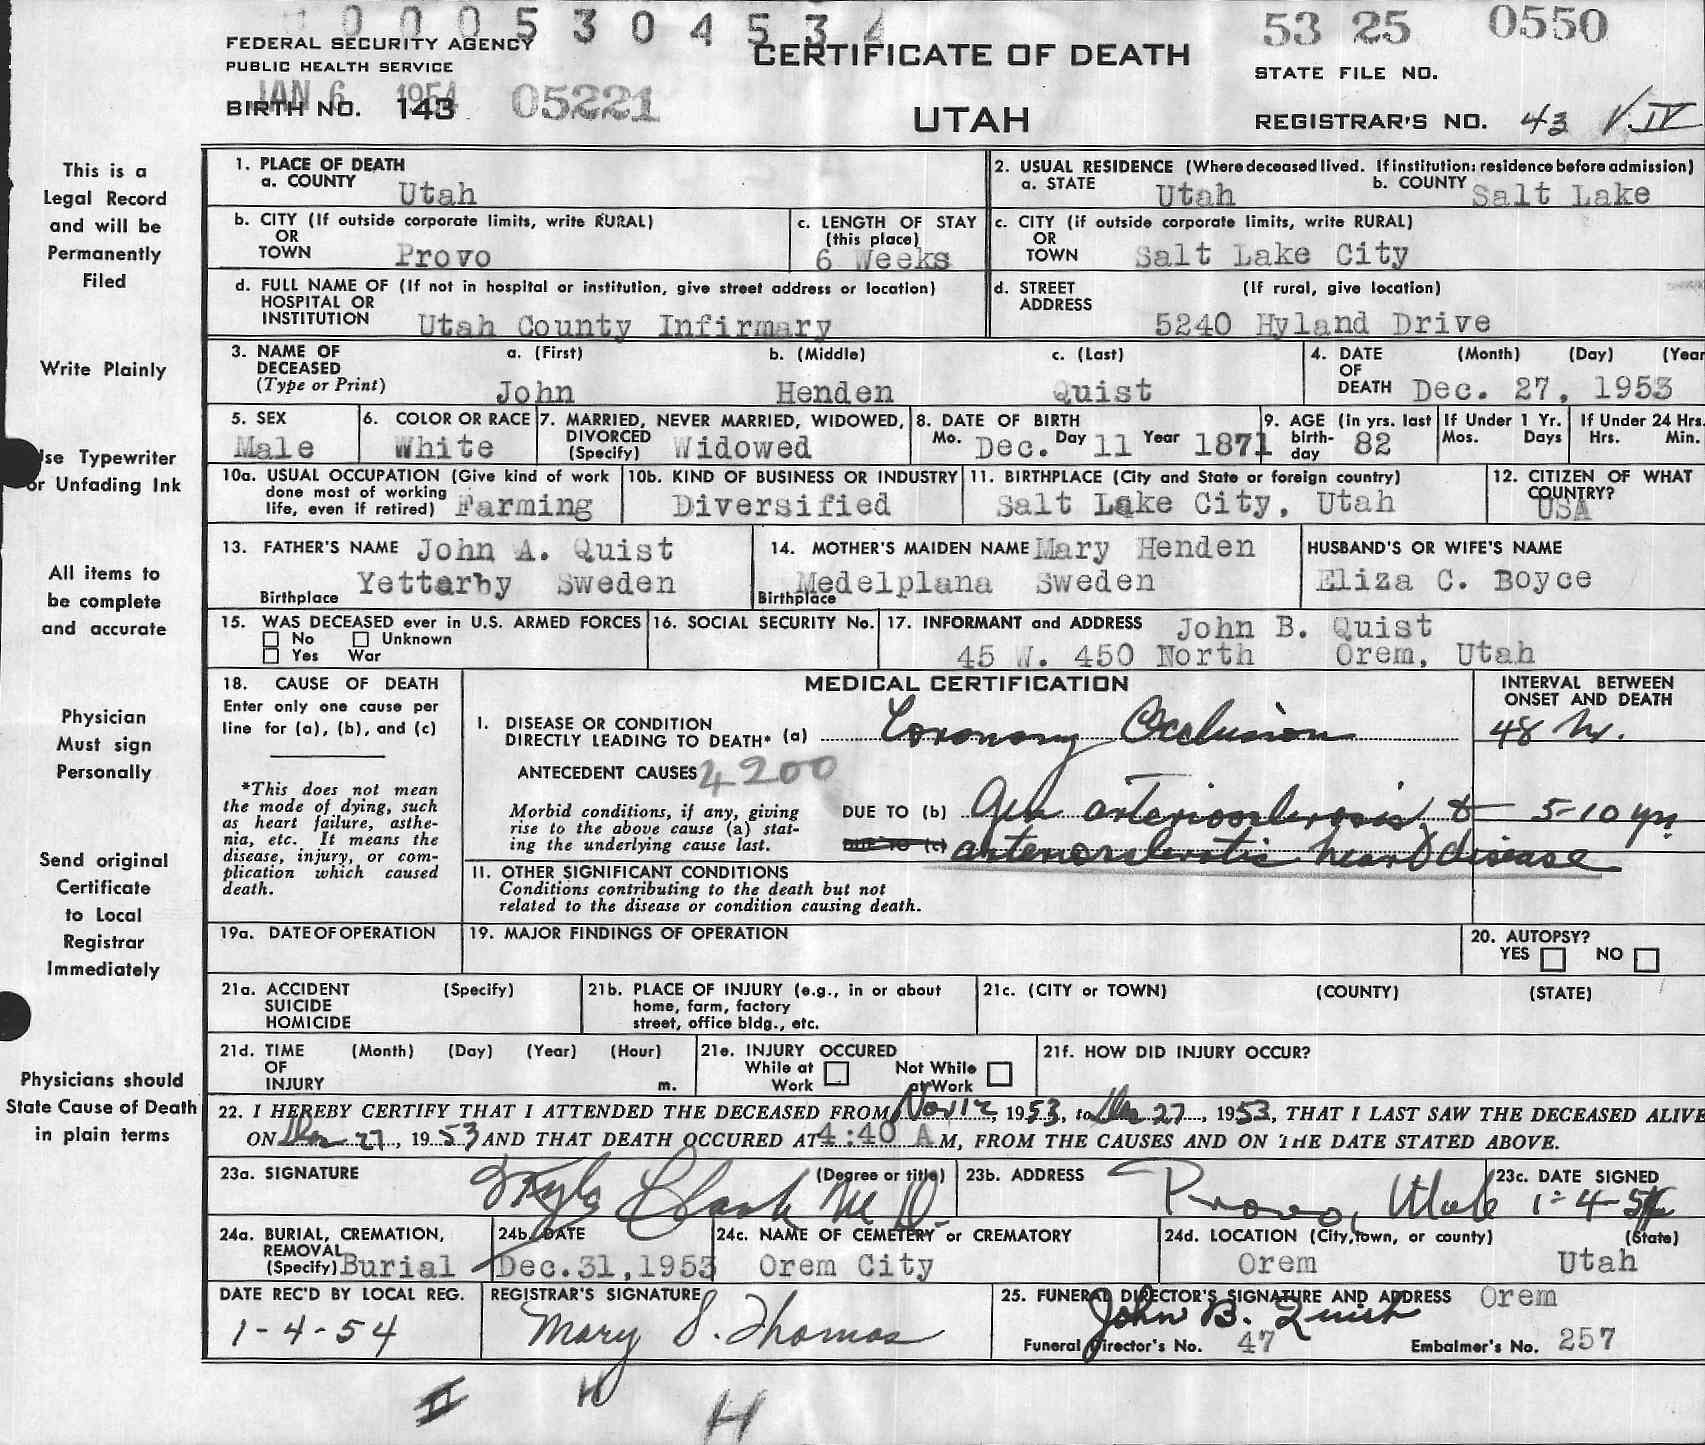 0 0 0 5 3 0 4 5 3 4
53 25 0550
FEDERAL SECURITY AGENCY
PUBLIC HEALTH SERVICE
CERTIFICATE OF DEATH
STATE FILE NO.
JAN 6 1954
BIRTH NO. 143 05221
UTAH
REGISTRAR'S NO. 43 V. IV
This is a
Legal Record
and will be
Permanently
Filed
Write Plainly
Use Typewriter
or Unfading Ink
All items to
be complete
and accurate
Physician
Must sign
Personally
Send original
Certificate
to Local
Registrar
Immediately
Physicians should
State Cause of Death
in plain terms
1. PLACE OF DEATH
a. COUNTY Utah
2. USUAL RESIDENCE (Where deceased lived. If institution: residence before admission)
a. STATE Utah b. COUNTY Salt Lake
b. CITY (If outside corporate limits, write RURAL)
OR
TOWN Provo
c. LENGTH OF STAY
(this place)
6 Weeks
c. CITY (if outside corporate limits, write RURAL)
OR
TOWN Salt Lake City
d. FULL NAME OF (If not in hospital or institution, give street address or location)
HOSPITAL OR
INSTITUTION Utah County Infirmary
d. STREET (If rural, give location)
ADDRESS
5240 Hyland Drive
3. NAME OF
DECEASED
(Type or Print)
a. (First) b. (Middle) c. (Last)
John Henden Quist
4. DATE (Month) (Day) (Year
OF
DEATH Dec. 27, 1953
5. SEX
Male
6. COLOR OR RACE
White
7. MARRIED, NEVER MARRIED, WIDOWED,
DIVORCED
(Specify) Widowed
8. DATE OF BIRTH
Mo. Dec. Day 11 Year 1871
9. AGE (in yrs. last
birth-
day 82
If Under 1 Yr.
Mos. Days
If Under 24 Hrs.
Hrs. Min.
10a. USUAL OCCUPATION (Give kind of work
done most of working
life, even if retired) Farming
10b. KIND OF BUSINESS OR INDUSTRY
Diversified
11. BIRTHPLACE (City and State or foreign country)
Salt Lake City, Utah
12. CITIZEN OF WHAT
COUNTRY?
USA
13. FATHER'S NAME John A. Quist
Birthplace Yettarby Sweden
14. MOTHER'S MAIDEN NAME Mary Henden
Birthplace Medelplana Sweden
HUSBAND'S OR WIFE'S NAME
Eliza C. Boyce
15. WAS DECEASED ever in U.S. ARMED FORCES
No Unknown
Yes War
16. SOCIAL SECURITY No.
17. INFORMANT and ADDRESS John B. Quist
45 W. 450 North Orem, Utah
18. CAUSE OF DEATH
Enter only one cause per
line for (a), (b), and (c)
*This does not mean
the mode of dying, such
as heart failure, asthe-
nia, etc. It means the
disease, injury, or com-
plication which caused
death.
MEDICAL CERTIFICATION
INTERVAL BETWEEN
ONSET AND DEATH
I. DISEASE OR CONDITION
DIRECTLY LEADING TO DEATH* (a) Coronary Occlusion 48 hr.
ANTECEDENT CAUSES 4200
Morbid conditions, if any, giving
rise to the above cause (a) stat-
ing the underlying cause last.
DUE TO (b) Gen arteriosclerosis & 5-10 yrs
DUE TO (c) arteriosclerotic heart disease
11. OTHER SIGNIFICANT CONDITIONS
Conditions contributing to the death but not
related to the disease or condition causing death.
19a. DATE OF OPERATION
19. MAJOR FINDINGS OF OPERATION
20. AUTOPSY?
YES NO
21a. ACCIDENT (Specify)
SUICIDE
HOMICIDE
21b. PLACE OF INJURY (e.g., in or about
home, farm, factory
street, office bldg., etc.
21c. (CITY or TOWN) (COUNTY) (STATE)
21d. TIME (Month) (Day) (Year) (Hour)
OF
INJURY m.
21e. INJURY OCCURED
While at Not While
Work at Work
21f. HOW DID INJURY OCCUR?
22. I HEREBY CERTIFY THAT I ATTENDED THE DECEASED FROM Nov 12, 1953, to Dec 27, 1953, THAT I LAST SAW THE DECEASED ALIVE
ON Dec 27, 1953 AND THAT DEATH OCCURED AT 4:40 A M, FROM THE CAUSES AND ON THE DATE STATED ABOVE.
23a. SIGNATURE (Degree or title)
Clark M D.
23b. ADDRESS
Provo, Utah
23c. DATE SIGNED
1-4-54
24a. BURIAL, CREMATION,
REMOVAL
(Specify) Burial
24b. DATE
Dec.31,1953
24c. NAME OF CEMETERY or CREMATORY
Orem City
24d. LOCATION (City, town, or county) (State)
Orem Utah
DATE REC'D BY LOCAL REG.
1-4-54
REGISTRAR'S SIGNATURE
Mary S. Thomas
25. FUNERAL DIRECTOR'S SIGNATURE AND ADDRESS Orem
John B. Quist
Funeral Director's No. 47 Embalmer's No. 257
II H H